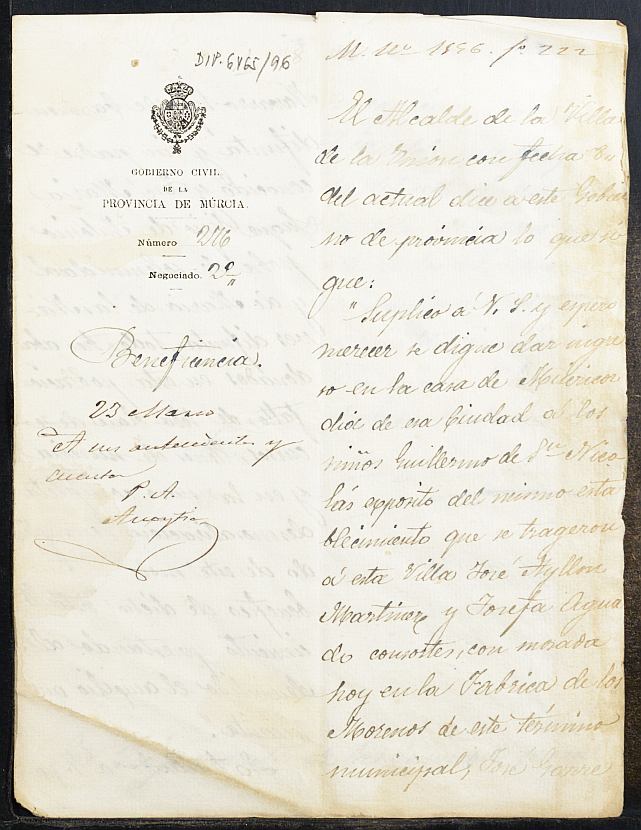 DIP. 6465/96
GOBIERNO CIVIL
DE LA
PROVINCIA DE MÚRCIA.
Número 276
Negociado. 2º
Beneficencia.
23 Marzo
A sus antecedentes y
cuenta
P. A.
M. Nº 1896. fº 222
El Alcalde de la Villa
de la Union con fecha
del actual dice á este Gobier
no de provincia lo que si
gue:
"Suplico á V. S. y espero
merecer se digne dar ingre
so en la casa de Misericor
dia de esa Ciudad á los
niños Guillermo de Sn. Nico
lás esposito del mismo esta
blecimiento que se trageron
á esta Villa José Ayllon
Martinez y Josefa Agua
do consortes, con morada
hoy en la Fabrica de los
Morenos de este término
municipal, José Garre